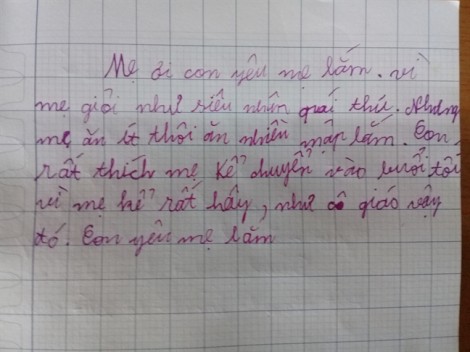 Mẹ ơi con yêu mẹ lắm. vì
mẹ giỏi như siêu nhân quái thú. Nhưng
mẹ ăn ít thôi ăn nhiều mập lắm. Con
rất thích mẹ kể chuyển vào buổi tối
vì mẹ kể rất hây, như cô giáo vậy
tó. Con yêu mẹ lăm